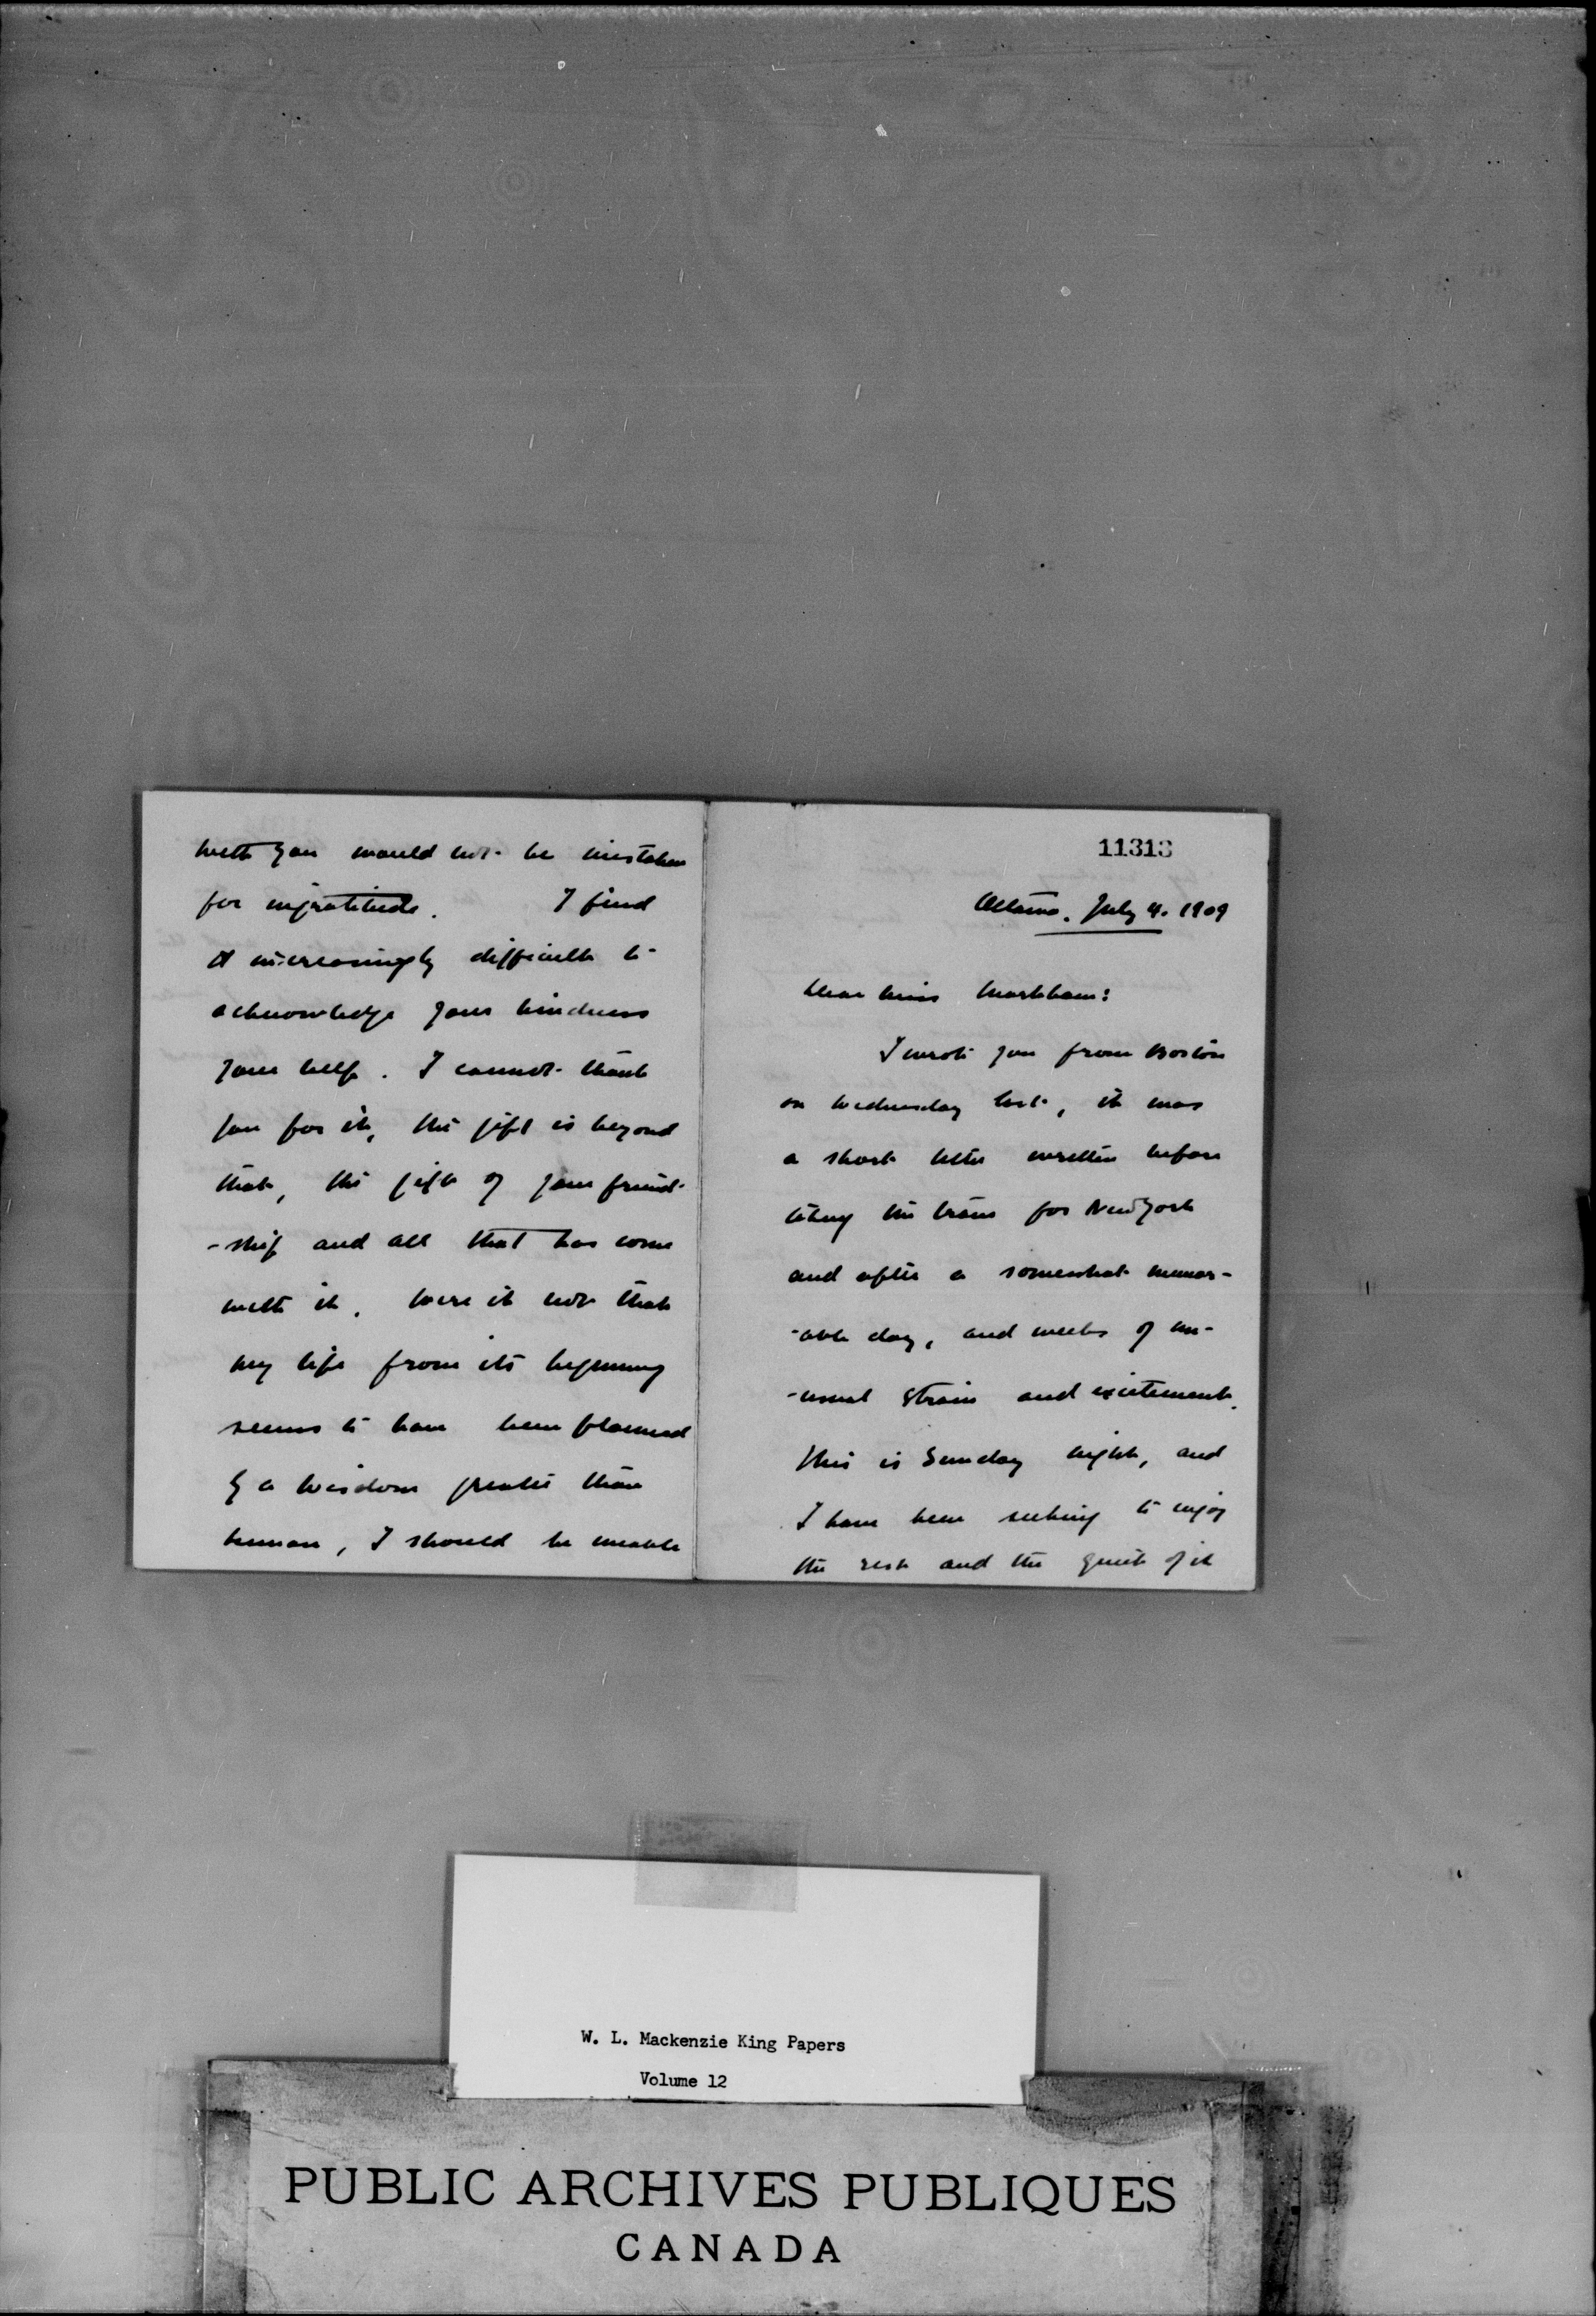 with you would not be mistaken
for ingratitude. I find
it increasingly difficult to
acknowledge your kindness
your help. I cannot thank
you for it, the gift is beyond
that, the gift of your friend-
-ship and all that has come
with it. Were it not that
my life from its beginning
seems to have been planned
by a wisdom greater than
human, I should be unable
11313
Ottawa. July 4. 1909
Dear Miss Markham:
I wrote you from Boston
on Wednesday last, it was
a short letter written before
taking the train for New York
and after a somewhat memor-
-able day, and weeks of un-
-usual strain and excitement.
This is Sunday night, and
I have been seeking to enjoy
the rest and the quiet of it
W. L. Mackenzie King Papers
Volume 12
PUBLIC ARCHIVES PUBLIQUES
CANADA